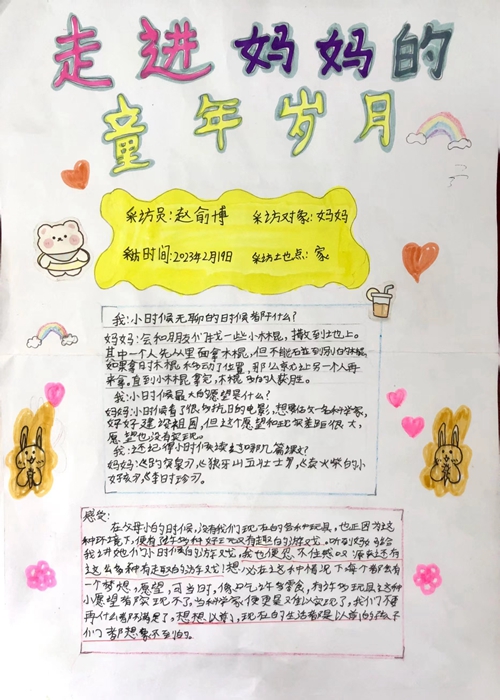 走进妈妈的
童年岁月
采访员:赵俞博 采访对象:妈妈
采访时间:2023年2月19日 采访地点:家
我:小时候无聊的时候都干什么?
妈妈:会和朋友们找一些小木棍,撒到地上。
其中一个人先从里面拿木棍,但不能碰到别的木棍,
如果拿时木棍移动了位置,那么就让另一个人再
来拿,直到小木棍拿完,木棍多的人获胜。
我:小时候最大的愿望是什么?
妈妈:小时候看了很多抗日的电影,想要做一名科学家,
好好建设祖国,但这个愿望和现实差距很大,
愿望也没有实现。
我:还记得小时候读过哪几篇课文?
妈妈:《狼牙山五壮士》《卖火柴的小
女孩》《李时珍》
感受:
在父母小的时候,没有我们现在的各种玩具,也正因为这
种环境下,便有许多种好玩又有趣的游戏。听到妈妈给
我讲她们小时候的游戏,我也便忍不住然叹 还有
这么多种有趣的游戏!想必在这种情况下每个都有
一个梦想,愿望,可当时,像口气 零食,有许多玩具这种
小愿望都实现不了,当科学家便更是难以实现了,我们不要
再什么都不满足了,想想以前,现在的生活都是以前的孩子
们都想象不到的。